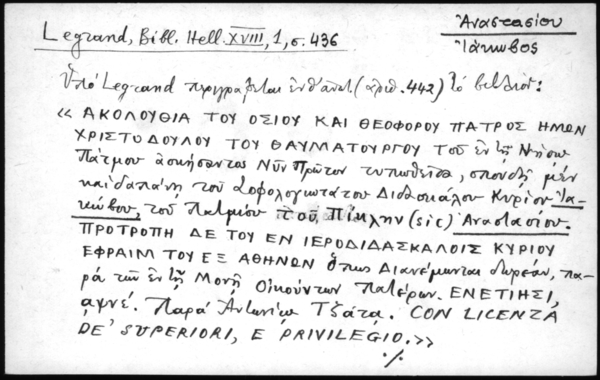 Ἀναστασίου
Ἰάκωβος
Legrand, Bibl. Hell. XVIII, 1, σ. 436
Ὑπό Legrand περιγράφεται ἐνθ' ἀνωτ. (ἀριθ. 442) τό βιβλίον:
« ΑΚΟΛΟΥΘΙΑ ΤΟΥ ΟΣΙΟΥ ΚΑΙ ΘΕΟΦΟΡΟΥ ΠΑΤΡΟΣ ΗΜΩΝ
ΧΡΙΣΤΟΔΟΥΛΟΥ ΤΟΥ ΘΑΥΜΑΤΟΥΡΓΟΥ τοῦ ἐν τῇ Νήσῳ
Πάτμου ἀσκήσαντος Νῦν Πρῶτον τυπωθεῖσα, σπουδῇ μέν
καί δαπάνῃ τοῦ Σοφολογιωτάτου Διδασκάλου Κυρίου Ἰα-
κώβου, τοῦ Πατμίου τοῦ Πίκλην (sic) Ἀναστασίου.
ΠΡΟΤΡΟΠΗ ΔΕ ΤΟΥ ΕΝ ΙΕΡΟΔΙΔΑΣΚΑΛΟΙΣ ΚΥΡΙΟΥ
ΕΦΡΑΙΜ ΤΟΥ ΕΞ ΑΘΗΝΩΝ ὅπως Διανέμωνται δωρεάν, πα-
ρά τῶν ἐν τῇ Μονῇ Οἰκούντων Πατέρων. ΕΝΕΤΙΗΣΙ,
αψνέ. Παρά Ἀντωνίῳ Τζάτα. CON LICENZA
DE' SUPERIORI, E PRIVILEGIO.»
./.